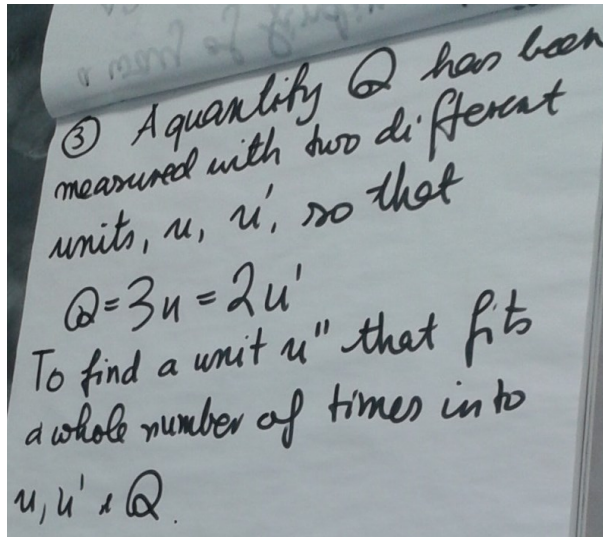 ③ A quantity Q has been
measured with two different
units, u, u', so that
Q = 3u = 2u'
To find a unit u" that fits
a whole number of times into
u, u' Q.